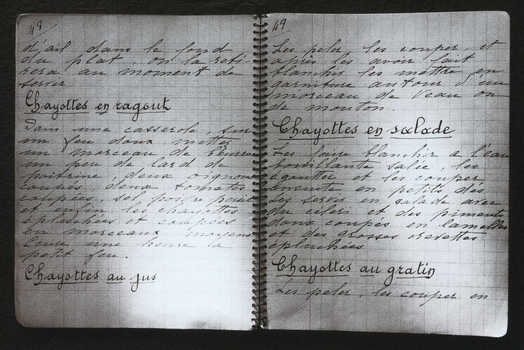 48
d'ail dans le fond
du plat. on la reti-
rera au moment de
servir
Chayottes en ragout
Dans une casserole, sur
un feu doux mettre
un morceau de beurre
un peu de lard de
poitrine deux oignons
coupés deux tomates
coupées, sel, poivre persil
et enfin les chayottes
épluchées et coupées
en morceaux moyens
Cuire une heure à
petit feu.
Chayottes au jus
49
Les peler, les couper et
après les avoir fait
blanchir les mettre en
garniture autour d'un
morceau de veau ou
de mouton.
Chayottes en salade
Les faire blanchir à l'eau
bouillante salée, les
égoutter et les couper
ensuite en petits dés
Les servir en salade avec
du céleri et des piments
doux coupés en lamelles
et de grosses crevettes
épluchées
Chayottes au gratin
Les peler, les couper en